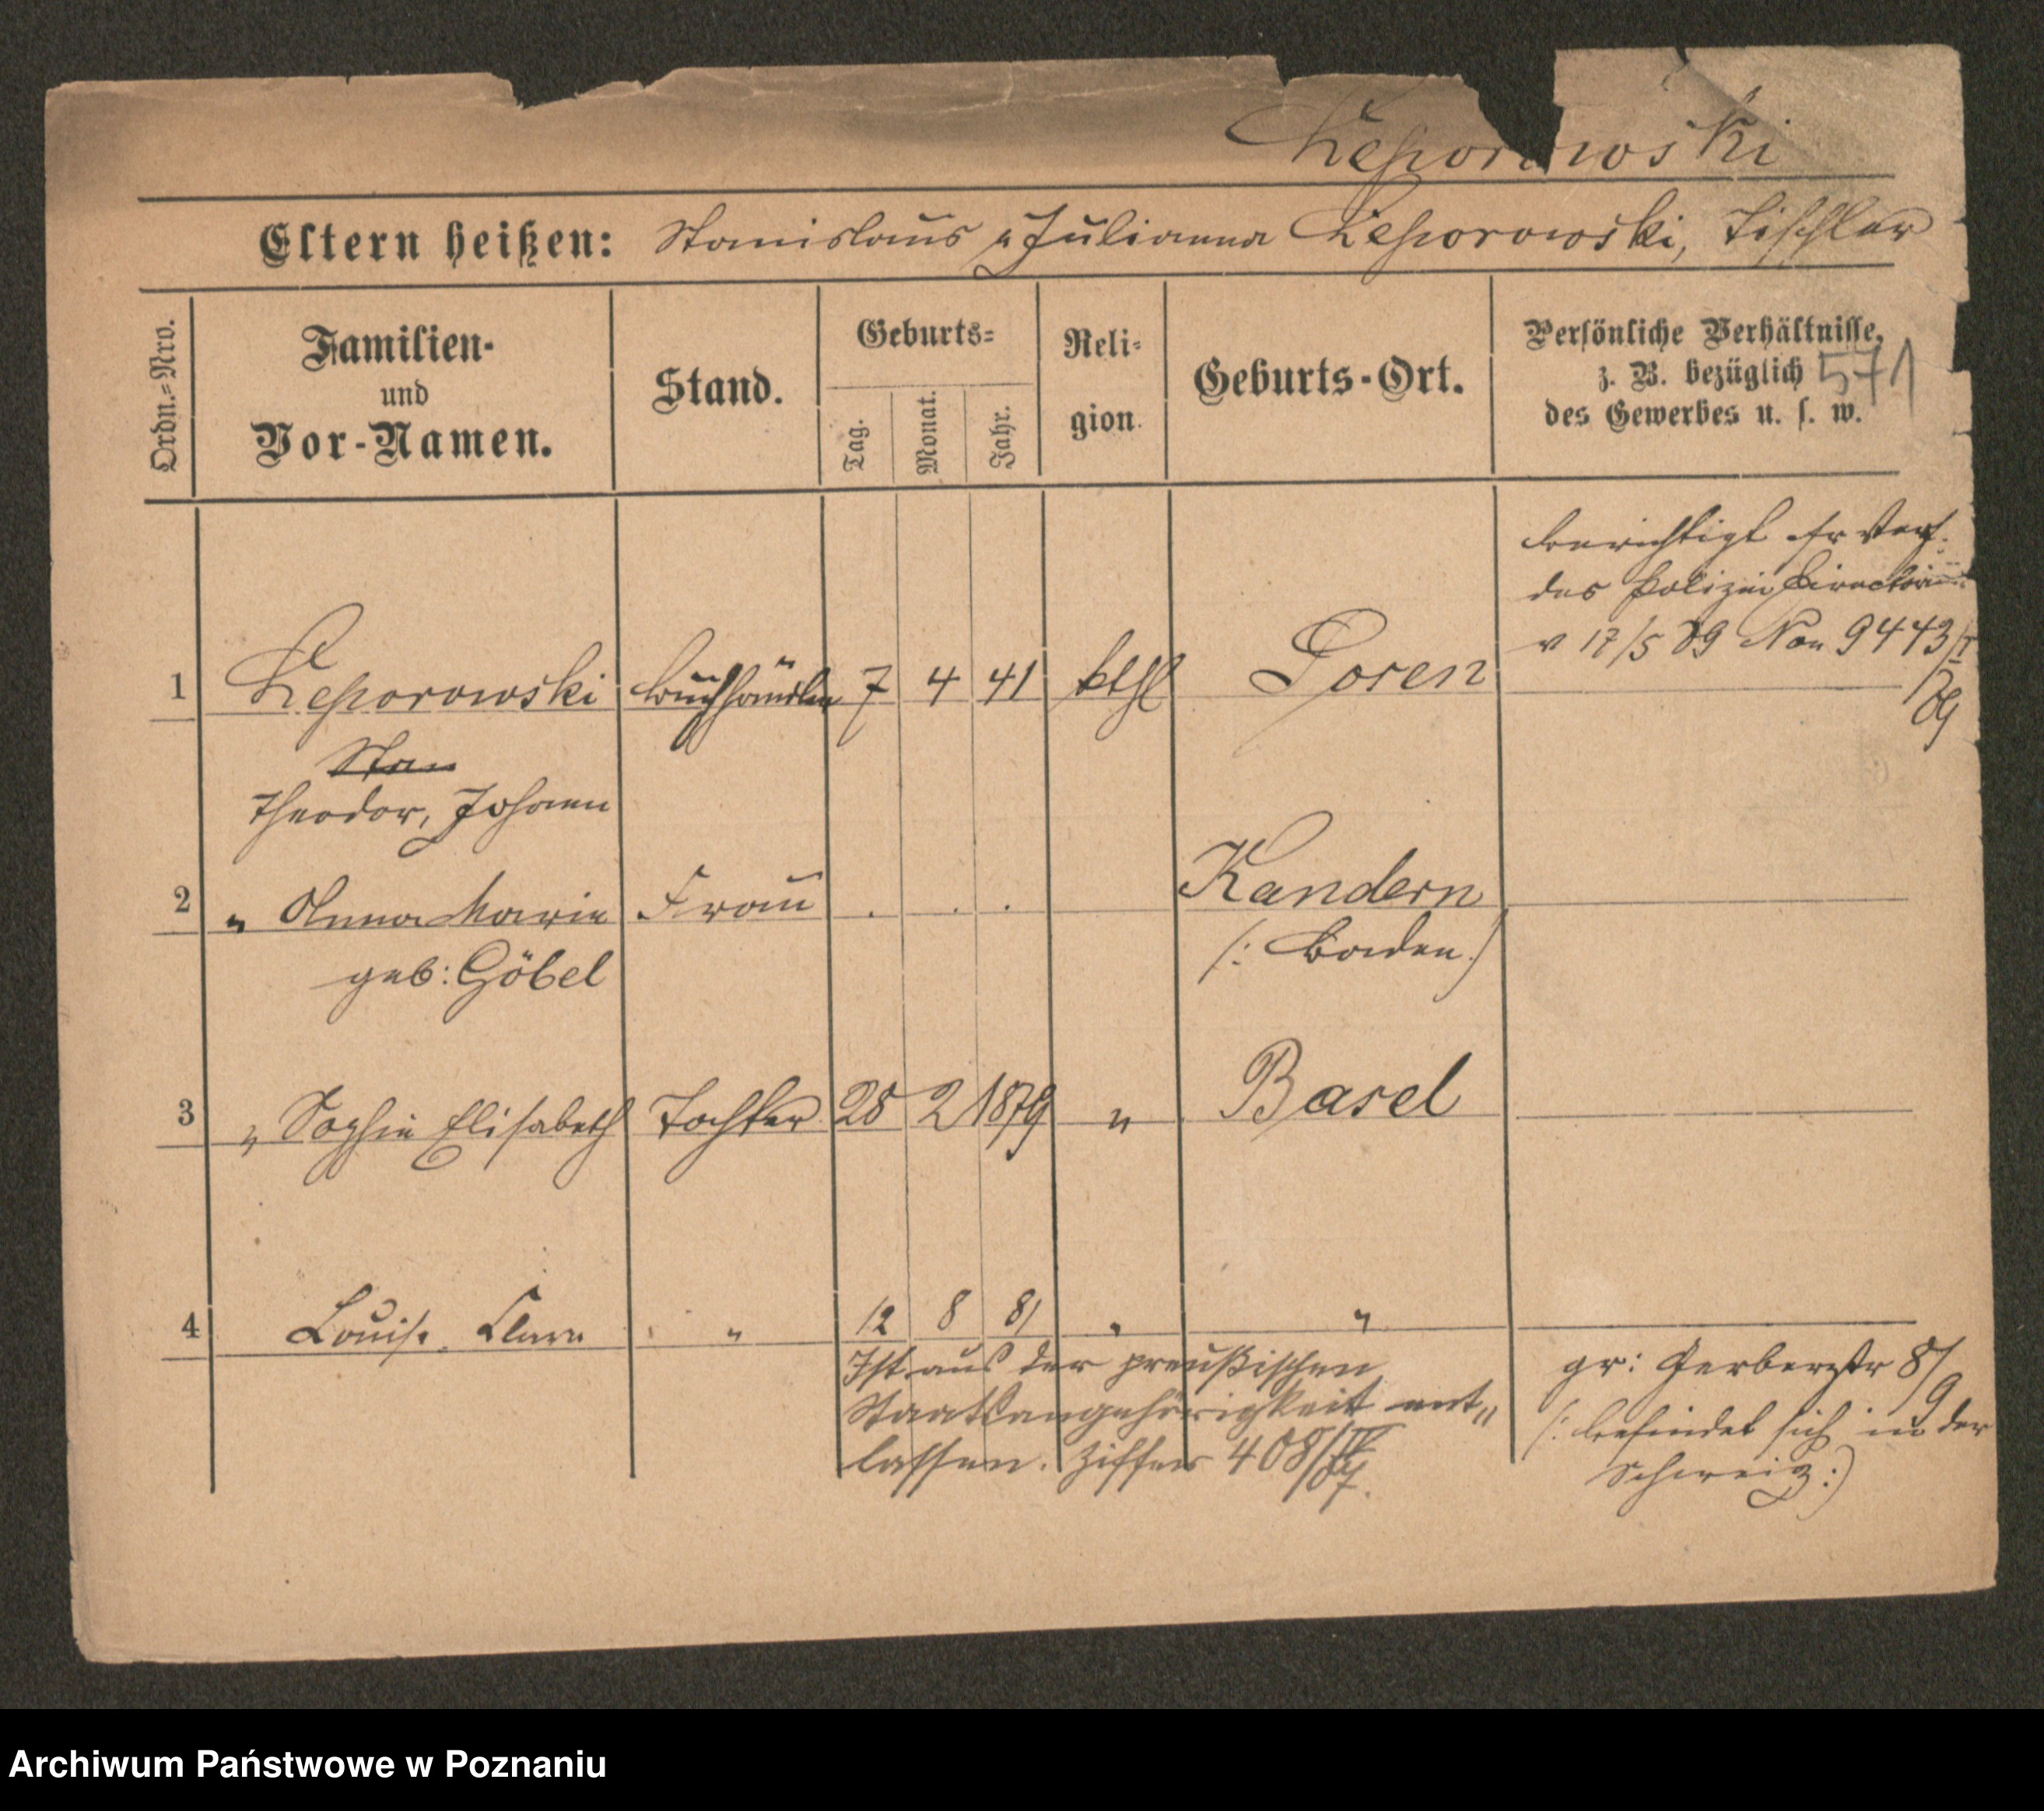 Leporowski
Eltern heißen: Stanislaus u Julianna Leporowski, Tischler
Ordn.=Nro.
Familien-
und
Vor-Namen.
Stand.
Geburts=
Tag.
Monat.
Jahr.
Reli-
gion
Geburts-Ort.
Persönliche Verhältnisse,
z. B. bezüglich
des Gewerbes u. s. w.
571
berichtigt fr Verf.
des Polizei Directoriums
v 17/5 89 Non 9443/I
/89
1 Leporowski Buchhändler 7 4 41 kthl Posen
Stan
Theodor, Johann
2 " Anna Marie Frau . . . Kandern
geb: Göbel (: Baden.)
3 " Sophie Elisabeth Tochter 28 2 1879 " Basel
4 Louise Clara " 12 8 81 " "
Ist aus der preußischen
Staatsangehörigkeit ent„
lassen. Ziffer 408/
gr: Gerberstr 8/9
(: befindet sich in der
Schweiz :)
Archiwum Państwowe w Poznaniu